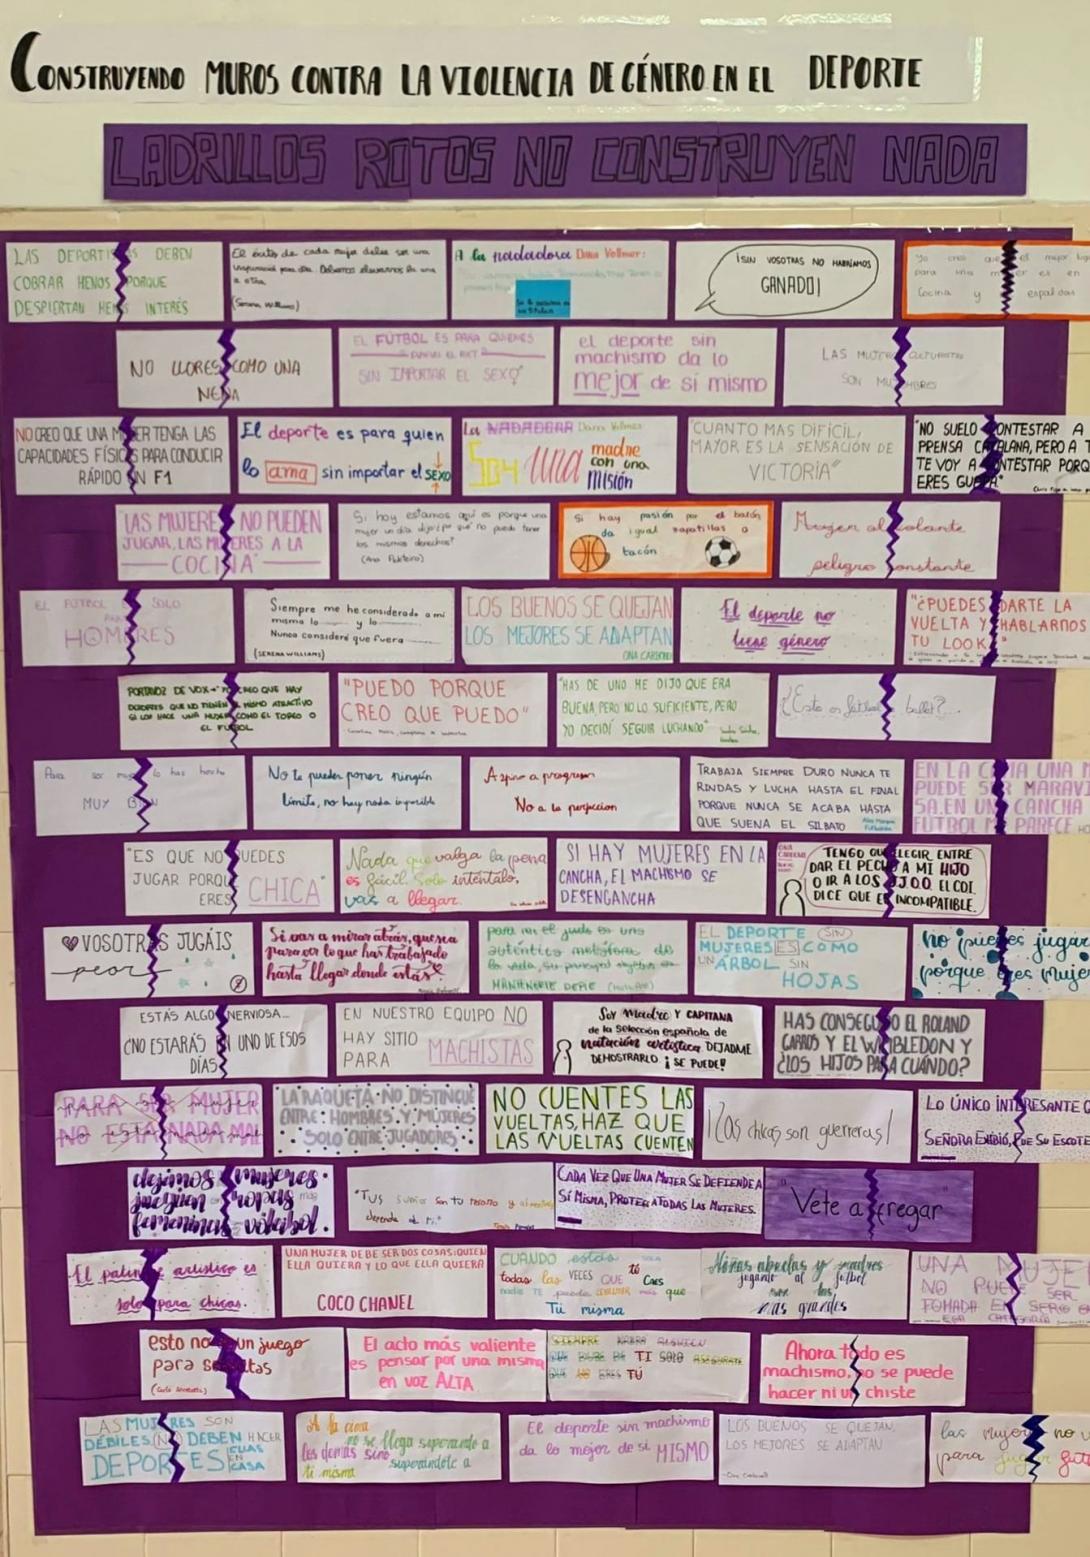 CONSTRUYENDO MUROS CONTRA LA VIOLENCIA DE GÉNERO EN EL DEPORTE
LADRILLOS ROTOS NO CONSTRUYEN NADA
LAS DEPORTISTAS DEBEN
COBRAR MENOS PORQUE
DESPIERTAN MENOS INTERÉS
El éxito de cada mujer debe ser una
inspiración para otra. Debemos elevarnos la una
a otra.
(Serena Williams)
A la nadadora Dana Vollmer:
¡SIN VOSOTRAS NO HABRÍAMOS
GANADO!
Yo creo que el mejor
para una mujer es en
Cocina y espaldas
NO LLORES COMO UNA
NENA
EL FÚTBOL ES PARA QUIENES
SIN IMPORTAR EL SEXO
el deporte sin
machismo da lo
mejor de sí mismo
LAS MUJERES
SON
NO CREO QUE UNA MUJER TENGA LAS
CAPACIDADES FÍSICAS PARA CONDUCIR
RÁPIDO UN F1
El deporte es para quien
lo ama sin importar el sexo
La NADADORA Dana Vollmer
SOY una madre
con una
misión
"CUANTO MAS DIFÍCIL,
MAYOR ES LA SENSACIÓN DE
VICTORIA"
"NO SUELO CONTESTAR A
PRENSA CATALANA, PERO A T
TE VOY A CONTESTAR PORQ
ERES GUAPA"
LAS MUJERES NO PUEDEN
JUGAR, LAS MUJERES A LA
COCINA"
Si hoy estamos aquí es porque una
mujer un día dijo ¿por qué no puedo tener
los mismos derechos?
(Ana Peleteiro)
Si hay pasión por el balón
da igual zapatillas o
tacón
Mujer al volante
peligro constante
EL FÚTBOL ES SOLO
PARA
HOMBRES
Siempre me he considerado a mi
misma lo ____ y lo ____.
Nunca consideré que fuera ____
(SERENA WILLIAMS)
LOS BUENOS SE QUEJAN
LOS MEJORES SE ADAPTAN
ONA CARBONELL
El deporte no
tiene género
"¿PUEDES DARTE LA
VUELTA Y HABLARNOS
TU LOOK
PORTAVOZ DE VOX → "YO CREO QUE HAY
DEPORTES QUE NO TIENEN EL MISMO ATRACTIVO
SI LOS HACE UNA MUJER COMO EL TOREO O
EL FÚTBOL
"PUEDO PORQUE
CREO QUE PUEDO"
"MÁS DE UNO ME DIJO QUE ERA
BUENA, PERO NO LO SUFICIENTE, PERO
YO DECIDÍ SEGUIR LUCHANDO"
¿Esto es fútbol o ballet?...
Para ser mujer lo has hecho
MUY BIEN
No te puedes poner ningún
límite, no hay nada imposible
Aspiro a progresar
No a la perfeccion
TRABAJA SIEMPRE DURO NUNCA TE
RINDAS Y LUCHA HASTA EL FINAL
PORQUE NUNCA SE ACABA HASTA
QUE SUENA EL SILBATO
EN LA CAMA UNA M
PUEDE SER MARAVI
SA. EN UNA CANCHA
FÚTBOL ME PARECE HO
"ES QUE NO PUEDES
JUGAR PORQUE
ERES CHICA"
Nada que valga la pena
es fácil. Solo inténtalo,
vas a llegar.
SI HAY MUJERES EN LA
CANCHA, EL MACHISMO SE
DESENGANCHA
ONA CARBONELL
TENGO QUE ELEGIR ENTRE
DAR EL PECHO A MI HIJO
O IR A LOS JJ.OO. EL COI.
DICE QUE ES INCOMPATIBLE.
VOSOTRAS JUGÁIS
peor
Si vas a mirar atrás, que sea
para ver lo que has trabajado
hasta llegar donde estás.
para mi el judo es una
auténtica metáfora de
la vida, su principal objetivo es
MANTENERTE DE PIE
EL DEPORTE SIN
MUJERES ES COMO
UN ÁRBOL SIN
HOJAS
no puedes jugar
porque eres mujer
ESTÁS ALGO NERVIOSA...
¿NO ESTARÁS EN UNO DE ESOS
DÍAS?
EN NUESTRO EQUIPO NO
HAY SITIO
PARA MACHISTAS
Soy Madre Y CAPITANA
de la Selección española de
natación artística DEJADME
DEMOSTRARLO ¡SE PUEDE!
HAS CONSEGUIDO EL ROLAND
GARROS Y EL WIMBLEDON Y
¿LOS HIJOS PARA CUÁNDO?
PARA SER MUJER
NO ESTÁ NADA MAL
LA RAQUETA NO DISTINGUE
ENTRE HOMBRES Y MUJERES
SOLO ENTRE JUGADORES
NO CUENTES LAS
VUELTAS, HAZ QUE
LAS VUELTAS CUENTEN
¡Las chicas son guerreras!
LO ÚNICO INTERESANTE Q
SEÑORA EXIBIÓ, FUE SU ESCOTE
dejamos mujeres
juegan ropas más
femeninas voleibol.
"TUS sueños son tu
depende de ti."
CADA VEZ QUE UNA MUJER SE DEFIENDE A
SÍ MISMA, PROTEGE A TODAS LAS MUJERES.
"Vete a fregar"
El patinaje artístico es
solo para chicas.
UNA MUJER DEBE SER DOS COSAS: QUIEN
ELLA QUIERA Y LO QUE ELLA QUIERA
COCO CHANEL
CUANDO estás SOLA
todas las VECES QUE té Caes
nadie te puede LEVANTAR más que
Tú misma
Niñas abuelas y madres
jugando al fútbol
son las
más grandes
UNA MUJER
NO PUEDE SER
TOMADA EN SERIO EN
ESA CATEGORÍA
esto no es un juego
para señoritas
El acto más valiente
es pensar por una misma
en voz ALTA
SIEMPRE HABRÁ ALGUIEN
QUE DUDE DE TI SOLO ASEGÚRATE
QUE NO ERES TÚ
Ahora todo es
machismo, no se puede
hacer ni un chiste
LAS MUJERES SON
DÉBILES (NO) DEBEN HACER
DEPORTES ELLAS
EN
CASA
A la cima
no se llega superando a
los demás sino superándote a
ti misma
El deporte sin machismo
da lo mejor de si MISMO
LOS BUENOS SE QUEJAN,
LOS MEJORES SE ADAPTAN
-Ona Carbonell
las mujeres no v
para jugar fút